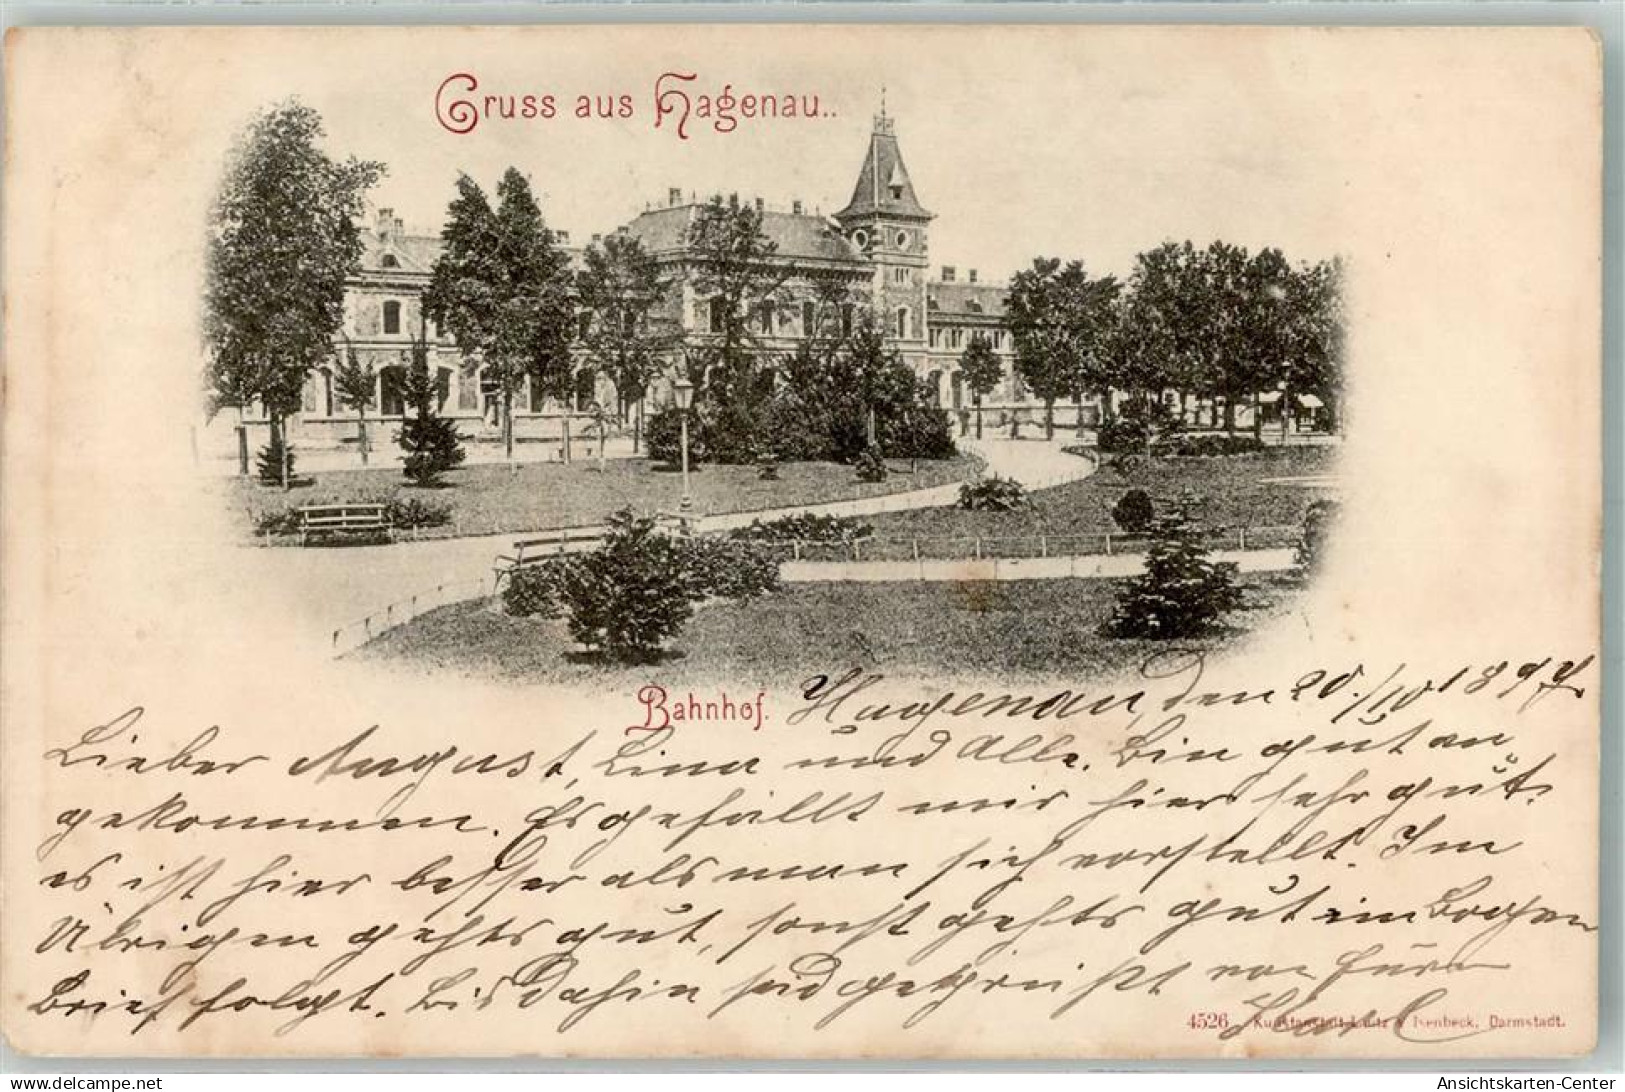 Gruss aus Hagenau..
Bahnhof.
Hagenau, den 20./10 1897
Lieber August, Lina und Alle. Bin gut an
gekommen. Es gefällt mir hier sehr gut.
es ist hier besser als man sich vorstellt. Im
Übrigen gehts gut, sonst gehts gut ein Bogen
Brief folgt. Bis dahin seid gegrüßt von Eurem
4526 Kunstanstalt Lautz & Isenbeck, Darmstadt.
Ansichtskarten-Center
https://www.ansichtskarten-center.de/